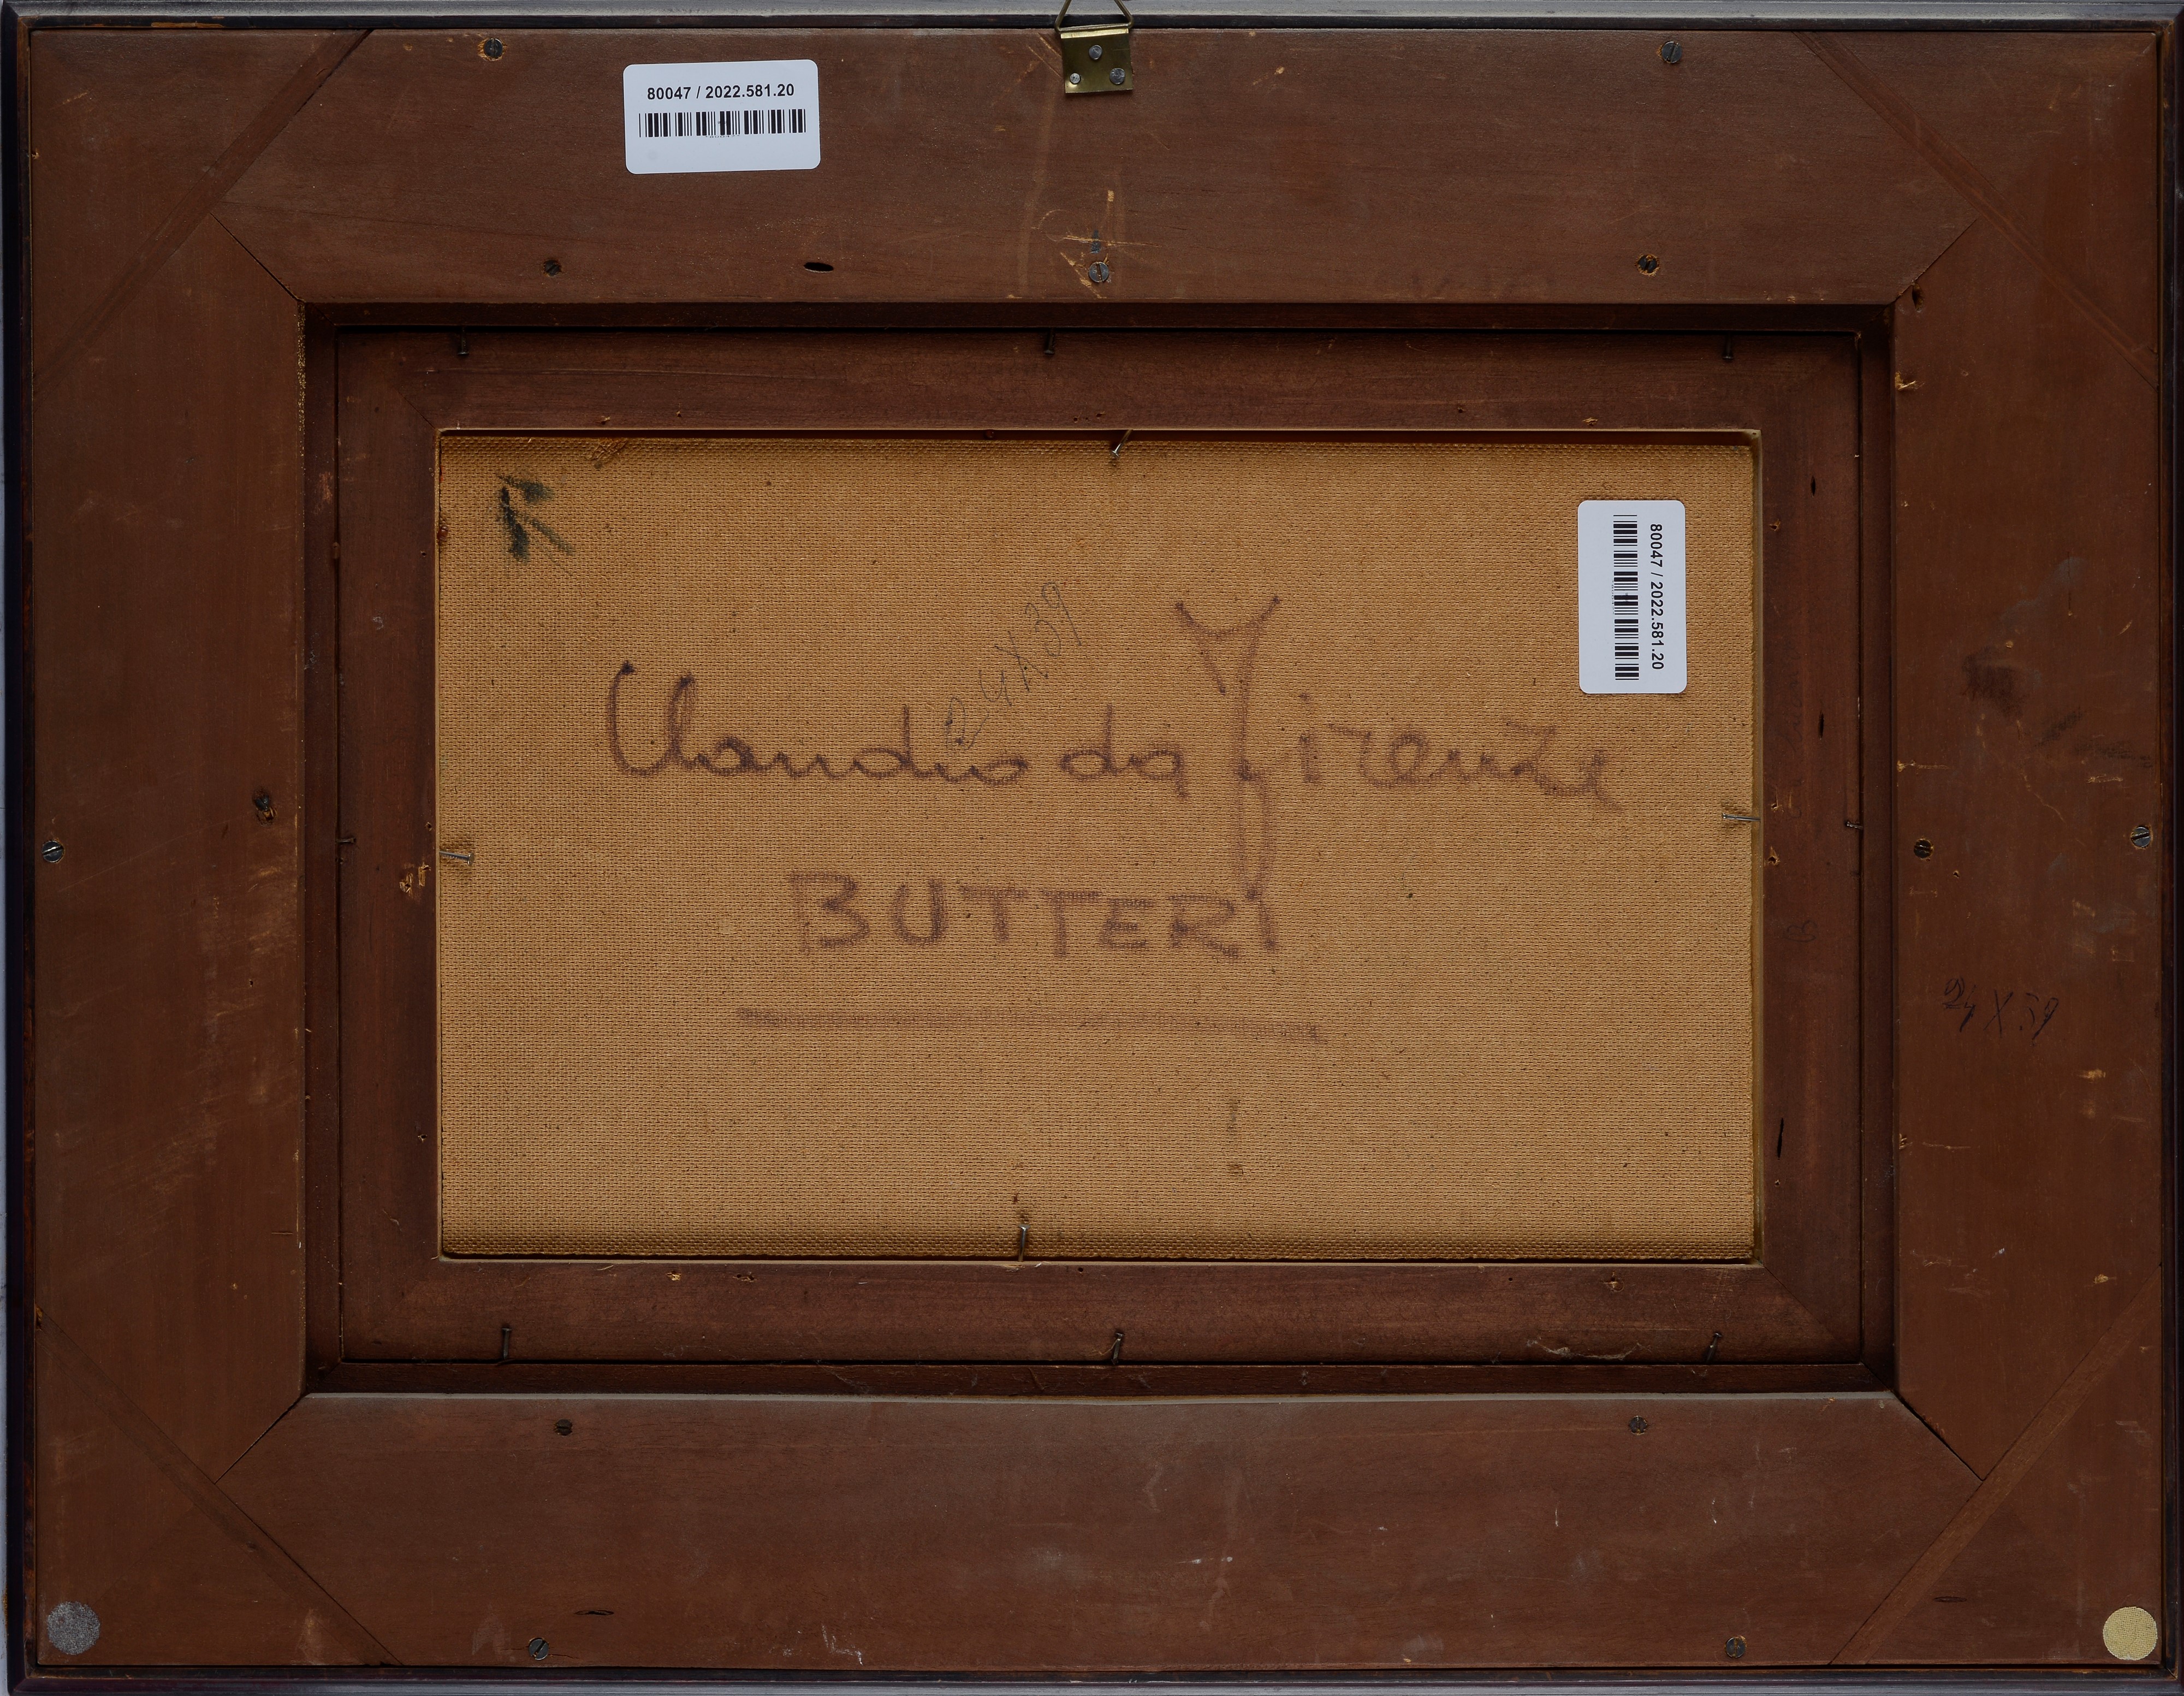 80047 / 2022.581.20
80047 / 2022.581.20
24X39
Claudio da Firenze
BUTTERI
24 X 39